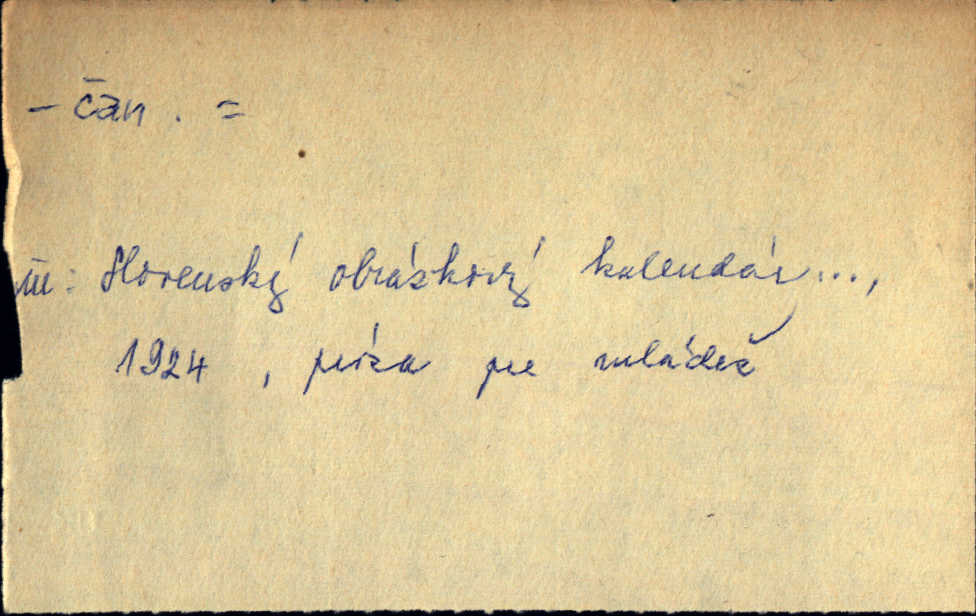 - čan . =
in: Slovenský obrázkový kalendár...,
1924, próza pre mládež